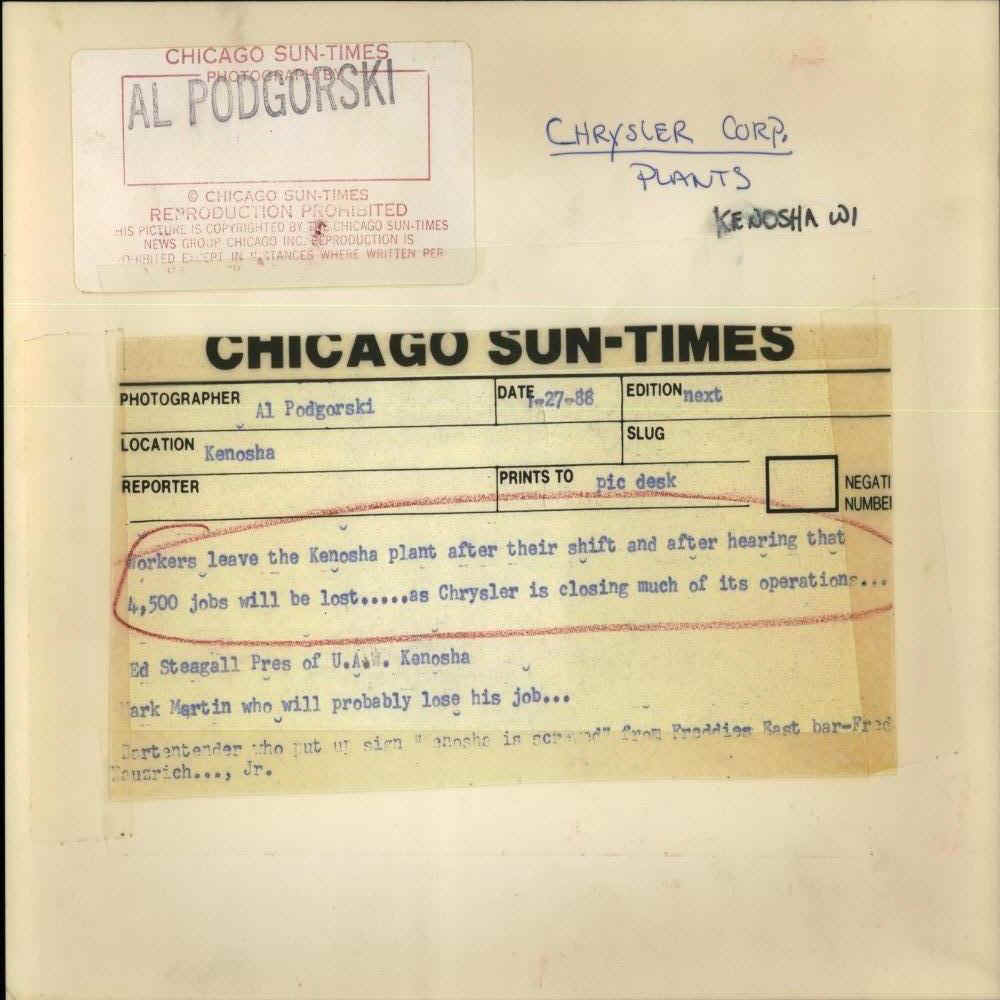 CHICAGO SUN-TIMES
PHOTOGRAPH BY
AL PODGORSKI
© CHICAGO SUN-TIMES
REPRODUCTION PROHIBITED
HIS PICTURE IS COPYRIGHTED BY THE CHICAGO SUN-TIMES
NEWS GROUP CHICAGO INC. REPRODUCTION IS
OHIBITED EXCEPT IN INSTANCES WHERE WRITTEN PER
CHRYSLER CORP.
PLANTS
KENOSHA WI
CHICAGO SUN-TIMES
PHOTOGRAPHER Al Podgorski DATE 1-27-88 EDITION next
LOCATION Kenosha SLUG
REPORTER PRINTS TO pic desk NEGATI
NUMBE
Workers leave the Kenosha plant after their shift and after hearing that
4,500 jobs will be lost.....as Chrysler is closing much of its operations...
Ed Steagall Pres of U.A.W. Kenosha
Mark Martin who will probably lose his job...
who put up sign "Kenosha is screwed" from Freddies East bar-Fred
Jr.